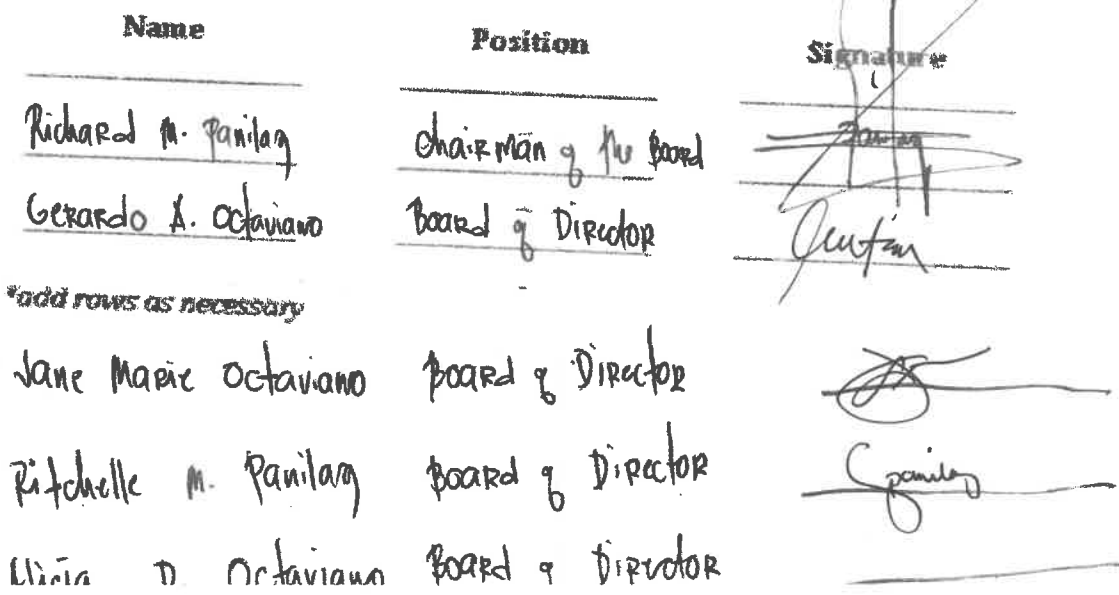 Name Position Signature
Richard M. Panilag Chairman of the Board Panilag
Gerardo A. Octaviano Board of Director
*add rows as necessary
Jane Marie Octaviano Board of Director
Ritchelle M. Panilag Board of Director Cpanilag
D. Octaviano Board of Director